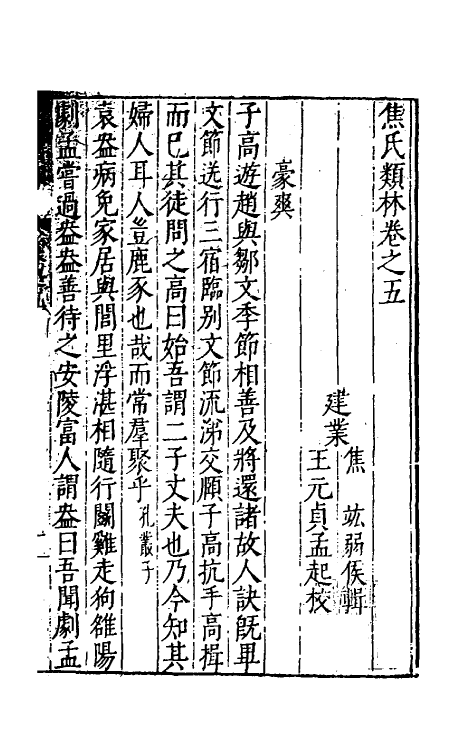 焦氏類林卷之五
建業
焦　竑弱侯輯
王元貞孟起校
豪爽
子高遊趙與鄒文季節相善及將還諸故人訣既畢
文節送行三宿臨別文節流涕交頤子高抗手高揖
而已其徒問之高曰始吾謂二子丈夫也乃今知其
婦人耳人豈鹿豕也哉而常羣聚乎孔叢子
袁盎病免家居與閭里浮湛相隨行鬭雞走狗雒陽
劇孟嘗過盎盎善待之安陵富人謂盎曰吾聞劇孟